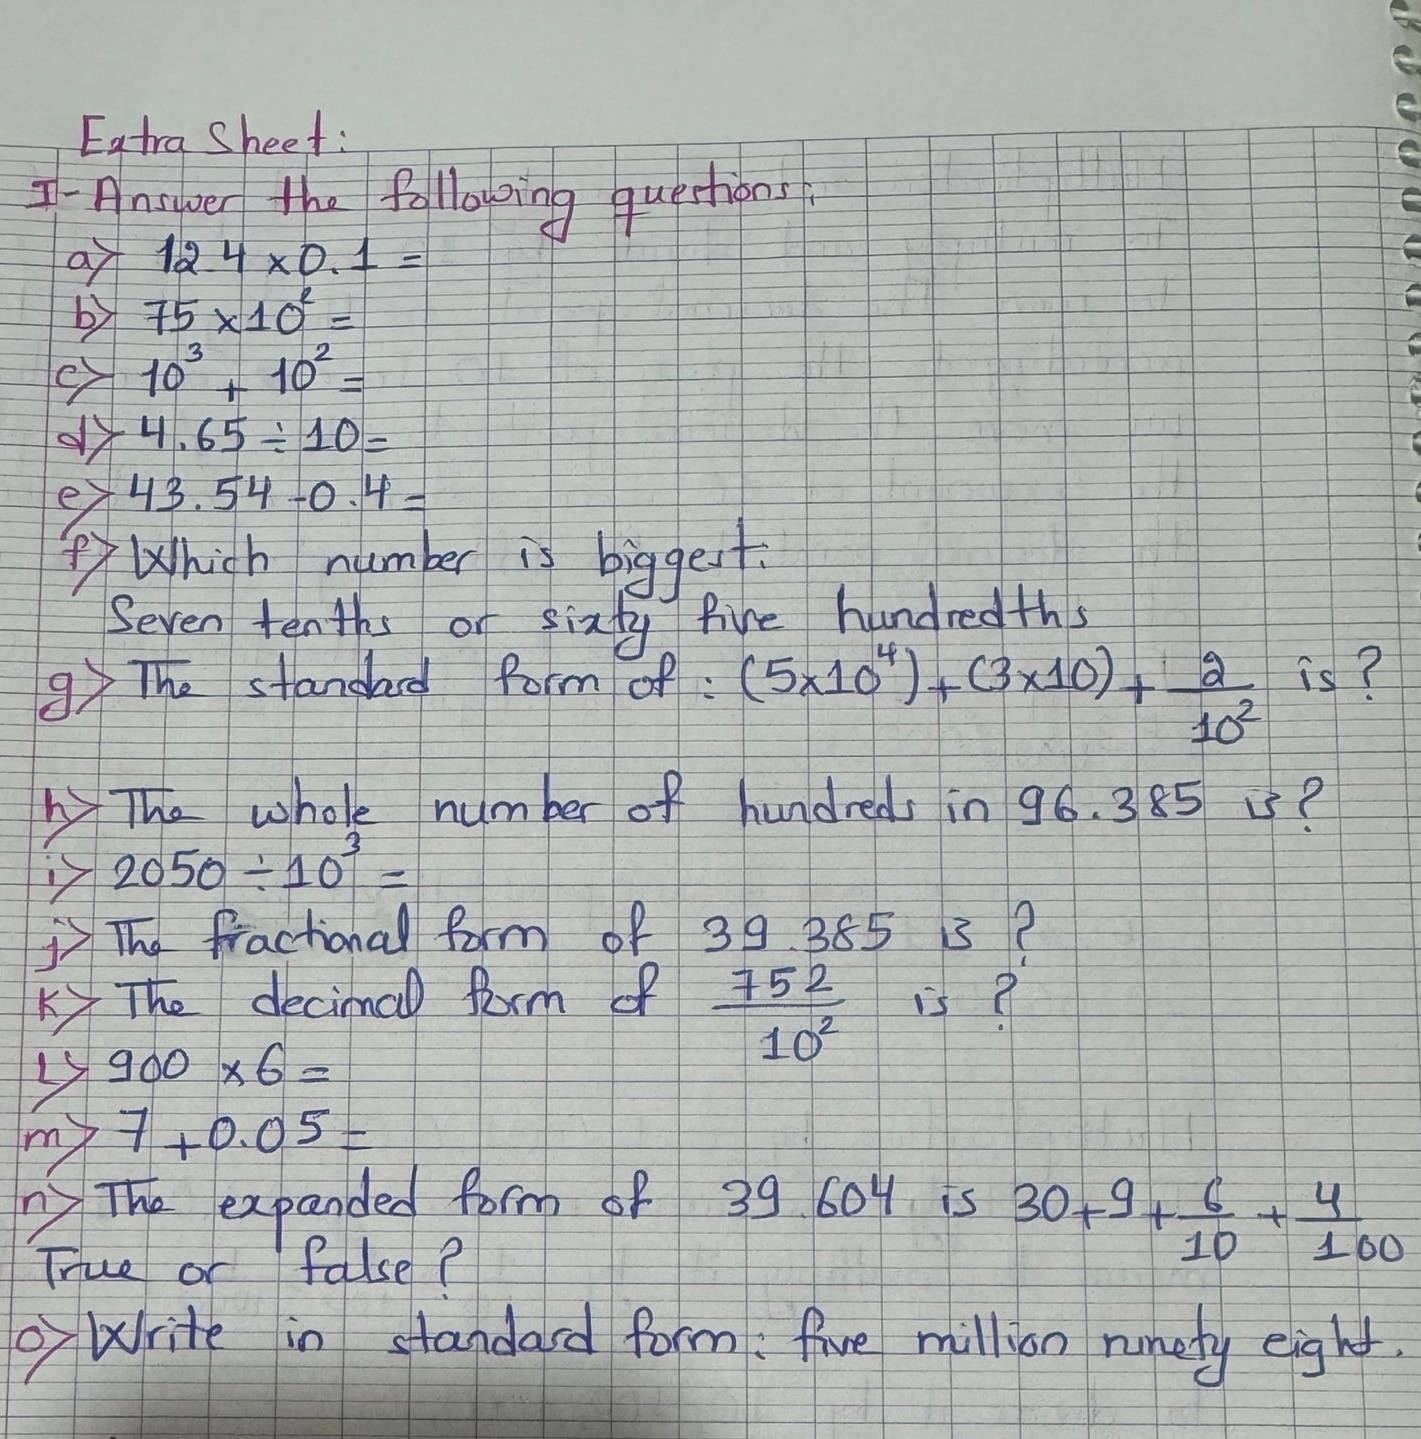 Extra Sheet:
I-Answer the following questions:
a) 12.4 × 0.1 =
b) 75 × 10² =
c) 10³ + 10² =
d) 4.65 ÷ 10 =
e) 43.54 - 0.4 =
f) Which number is biggest:
Seven tenths or sixty five hundredths
g) The standard form of : (5×10⁴) + (3×10) + 2/10² is ?
h) The whole number of hundreds in 96.385 is ?
i) 2050 ÷ 10³ =
j) The fractional form of 39.385 is ?
k) The decimal form of 752/10² is ?
l) 900 × 6 =
m) 7 + 0.05 =
n) The expanded form of 39.604 is 30+9+6/10+4/100
True or false ?
o) Write in standard form : five million ninety eight.